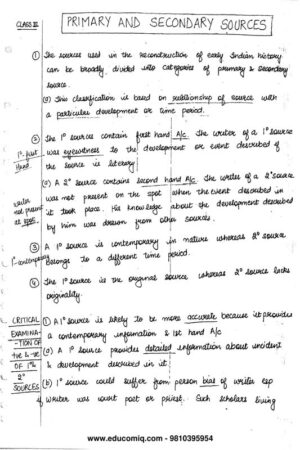 CLASS III
PRIMARY AND SECONDARY SOURCES
① The sources used in the reconstruction of early Indian history
can be broadly divided into categories of primary & secondary
source.
(a) This classification is based on relationship of source with
a particular development or time period.
② The 1° sources contain first hand A/c. The writer of a 1° source
was eyewitness to the development or event described if
the source is literary.
1° first
hand
(a) A 2° source contains second hand A/c. The writer of a 2° source
was not present on the spot when the event described in
it took place. His knowledge about the development described
by him was drawn from other sources.
writer
not present
at spot
③ A 1° source is contemporary in nature whereas 2° source
belongs to a different time period.
1° contemporary
④ The 1° source is the original source whereas 2° source lacks
originality.
CRITICAL
EXAMINA-
-TION OF
+ve & -ve
OF 1° &
2°
SOURCES
① A 1° source is likely to be more accurate because it provides
a contemporary information & 1st hand A/c
(a) A 1° source provides detailed information about incident
& development described in it.
(b) 1° source could suffer from person bias of writer esp
if writer was court poet or priest. Such scholars living
www.educomiq.com - 9810395954